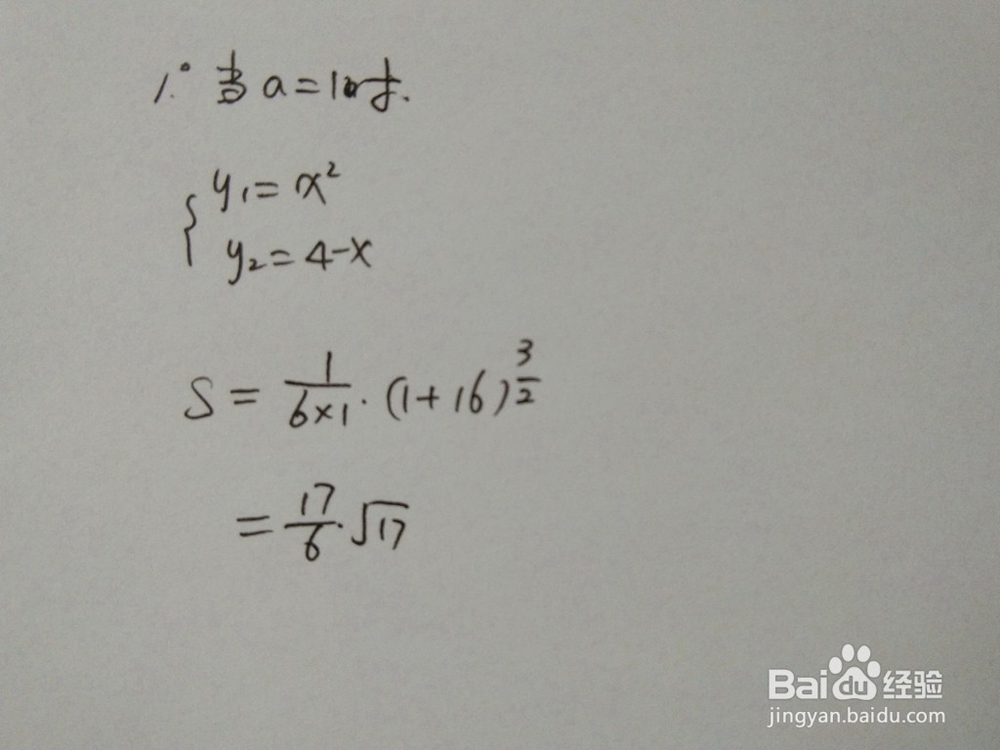 1.° 当a=1时.
y₁=x²
y₂=4-x
S = 1/(6×1)·(1+16)^(3/2)
= 17/6·√17
Baidu经验
jingyan.baidu.com